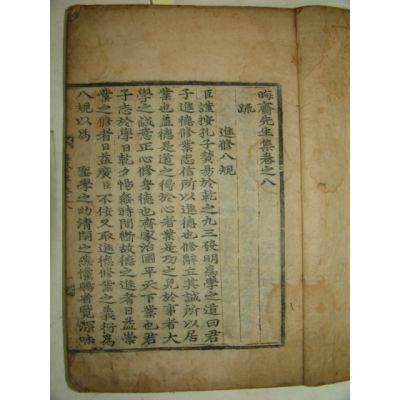 晦齋先生集卷之八
疏
進修八規
臣謹按孔子贊易於乾之九三發明爲學之道曰君
子進德修業忠信所以進德也修辭立其誠所以居
業也盖德是道之得於心者業是功之見於事者大
學之誠意正心修身德也齊家治國平天下業也君
子志於學日乾夕惕無時間斷故德之進者日益崇
業之修者日益廣臣不佞又取進德修業之義衍爲
八規以爲 聖學之助清閒之燕儻賜省覽深味